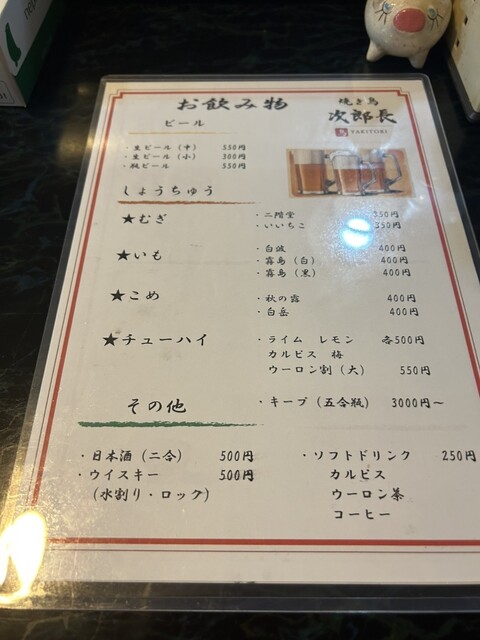 お飲み物
焼き鳥
次郎長
鳥 YAKITORI
ビール
・生ビール（中） 550円
・生ビール（小） 300円
・瓶ビール 550円
しょうちゅう
★むぎ ・二階堂 350円
・いいちこ 350円
★いも ・白波 400円
・霧島（白） 400円
・霧島（黒） 400円
★こめ ・秋の露 400円
・白岳 400円
★チューハイ ・ライム レモン 各500円
カルピス 梅
ウーロン割（大） 550円
・キープ（五合瓶） 3000円～
その他
・日本酒（二合） 500円
・ウイスキー 500円
（水割り・ロック）
・ソフトドリンク 250円
カルピス
ウーロン茶
コーヒー